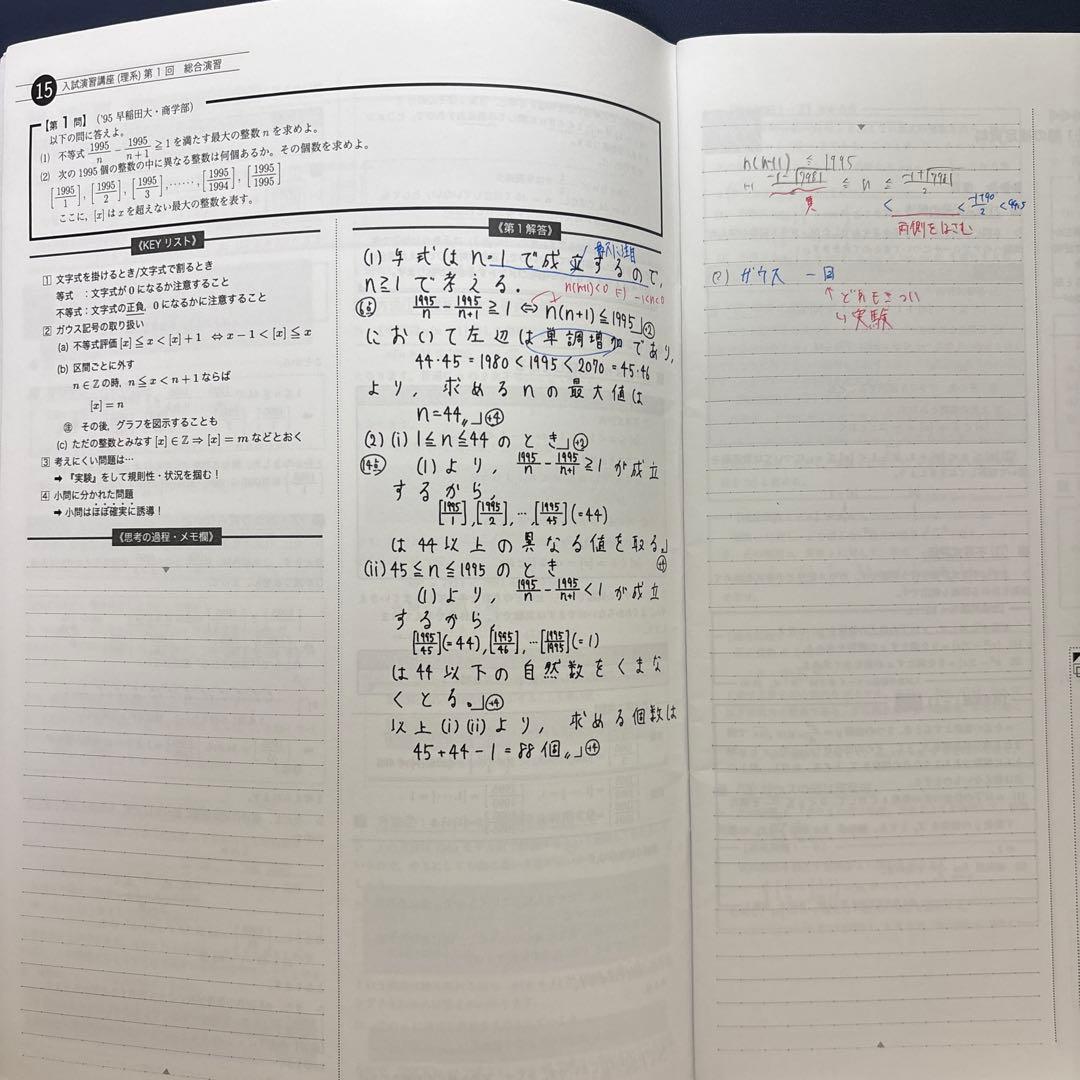 15 入試演習講座(理系)第1回 総合演習
【第1問】('95 早稲田大・商学部)
以下の問に答えよ。
(1) 不等式 1995/n − 1995/(n+1) ≧ 1 を満たす最大の整数 n を求めよ。
(2) 次の1995個の整数の中に異なる整数は何個あるか。その個数を求めよ。
[1995/1], [1995/2], [1995/3], ……, [1995/1994], [1995/1995]
ここに, [x] は x を超えない最大の整数を表す。
《KEYリスト》
1 文字式を掛けるとき/文字式で割るとき
等式 :文字が0になるか注意すること
不等式:文字の正負, 0になるかに注意すること
2 ガウス記号の取り扱い
(a) 不等式評価 [x] ≦ x < [x]+1 ⇔ x−1 < [x] ≦ x
(b) 区間ごとに外す
n∈Z の時, n ≦ x < n+1 ならば
[x] = n
注 その後, グラフを図示することも
(c) ただの整数とみなす [x]∈Z ⇒ [x] = m などとおく
3 考えにくい問題は…
➡ 『実験』をして規則性・状況を掴む!
4 小問に分かれた問題
➡ 小問はほぼ確実に誘導!
《思考の過程・メモ欄》
《第1解答》
(1) 与式は n=1 で成立するので,
n≧1 で考える.
n(n+1)<0 ⇔ −1<n<0
1995/n − 1995/(n+1) ≧ 1 ⇔ n(n+1) ≦ 1995 」+2
において左辺は単調増加であり,
44・45 = 1980 < 1995 < 2070 = 45・46
より, 求めるnの最大値は
n=44〃 」+4
(2) (i) 1≦n≦44 のとき 」+2
(1)より, 1995/n − 1995/(n+1) ≧ 1 が成立
するから,
[1995/1], [1995/2], … [1995/45] (=44)
は44以上の異なる値を取る。」
+4
(ii) 45≦n≦1995 のとき
(1)より, 1995/n − 1995/(n+1) < 1 が成立
するから,
[1995/45](=44), [1995/46], … [1995/1995](=1)
は44以下の自然数をくまな
くとる。」+4
以上(i)(ii)より, 求める個数は
45+44−1 = 88個〃 」+4
n(n+1) ≦ 1995
(−1−√7981)/2 ≦ n ≦ (−1+√7981)/2
< < (−1+90)/2 < 44.5
両側をはさむ
(2) ガウス
実験